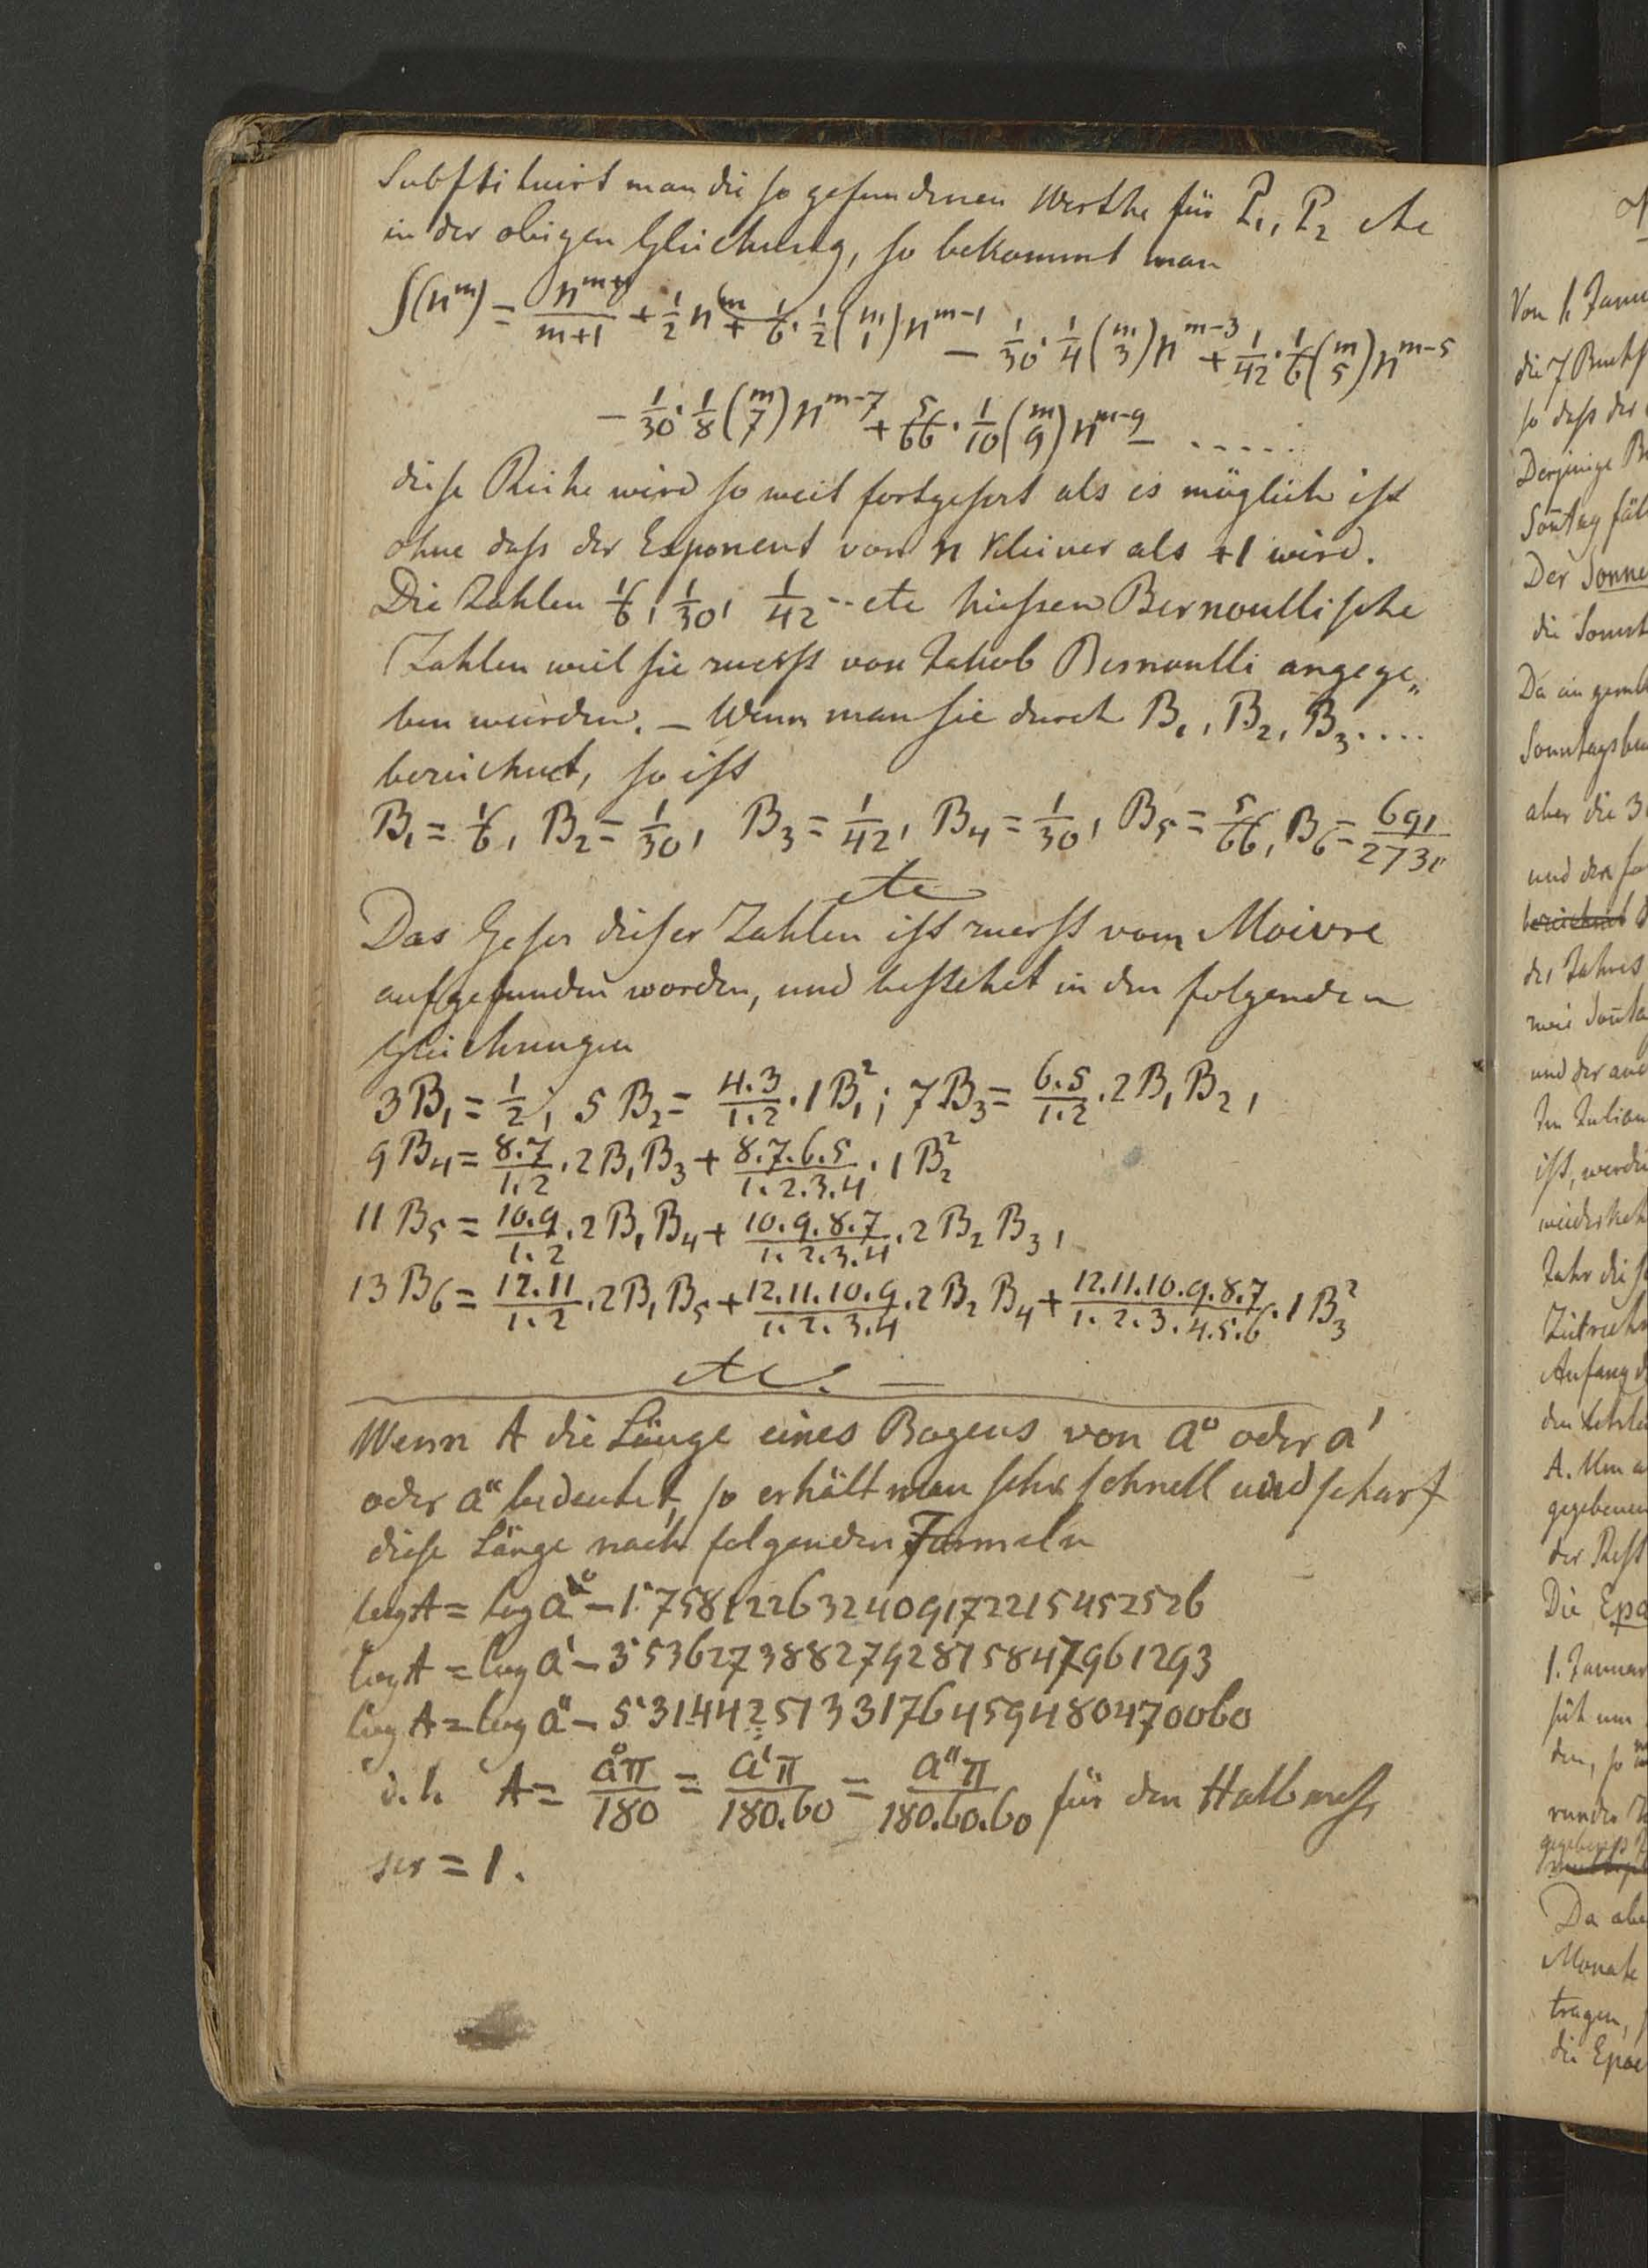 Substituirt man die so gefundenen Werthe für P₁, P₂ etc
in der obigen Gleichung, so bekommt man
∫(n^m) = n^(m+1)/(m+1) + 1/2 n^m + 1/6 · 1/2 (m über 1) n^(m-1) − 1/30 · 1/4 (m über 3) n^(m-3) + 1/42 · 1/6 (m über 5) n^(m-5)
− 1/30 · 1/8 (m über 7) n^(m-7) + 5/66 · 1/10 (m über 9) n^(m-9) − .....
diese Reihe wird so weit fortgesezt als es möglich ist
ohne dass der Exponent von n kleiner als +1 wird.
Die Zahlen 1/6, 1/30, 1/42 -- etc heissen Bernoullische
Zahlen weil sie zuerst von Jakob Bernoulli angege„
ben wurden. – Wenn man sie durch B₁, B₂, B₃....
bezeichnet, so ist
B₁ = 1/6, B₂ = 1/30, B₃ = 1/42, B₄ = 1/30, B₅ = 5/66, B₆ = 691/2730
etc
Das Gesez dieser Zahlen ist zuerst vom Moivre
aufgefunden worden, und bestehet in den folgenden
Gleichungen
3B₁ = 1/2, 5B₂ = 4.3/1.2 · 1B₁²; 7B₃ = 6.5/1.2 · 2B₁B₂,
9B₄ = 8.7/1.2 · 2B₁B₃ + 8.7.6.5/1.2.3.4 · 1B₂²
11B₅ = 10.9/1.2 · 2B₁B₄ + 10.9.8.7/1.2.3.4 · 2B₂B₃,
13B₆ = 12.11/1.2 · 2B₁B₅ + 12.11.10.9/1.2.3.4 · 2B₂B₄ + 12.11.10.9.8.7/1.2.3.4.5.6 · 1B₃²
etc. —
Wenn A die Länge eines Bogens von a° oder a'
oder a" bedeutet, so erhält man sehr schnell und scharf
diese Länge nach folgenden Formeln
log A = log a° − 1˙758122632409172215452526
log A = log a' − 3˙536273882792815847961293
log A = log a" − 5˙314425133176459480470060
d.h. A = a°π/180 = a'π/180.60 = a"π/180.60.60 für den Halbmess
ser = 1.
Von 1. Janu
die 7 Buchs
so dass der
Derjenige
Der Sonne
Sonntagsbu
aber die 3
und der
bezeichnet
des Jahres
und der
Im Julian
ist, werde
Jahr die
Anfang
gegebenen
der Rest
Die Epa
1. Januar
Da abe
Monate
tragen,
die Epac